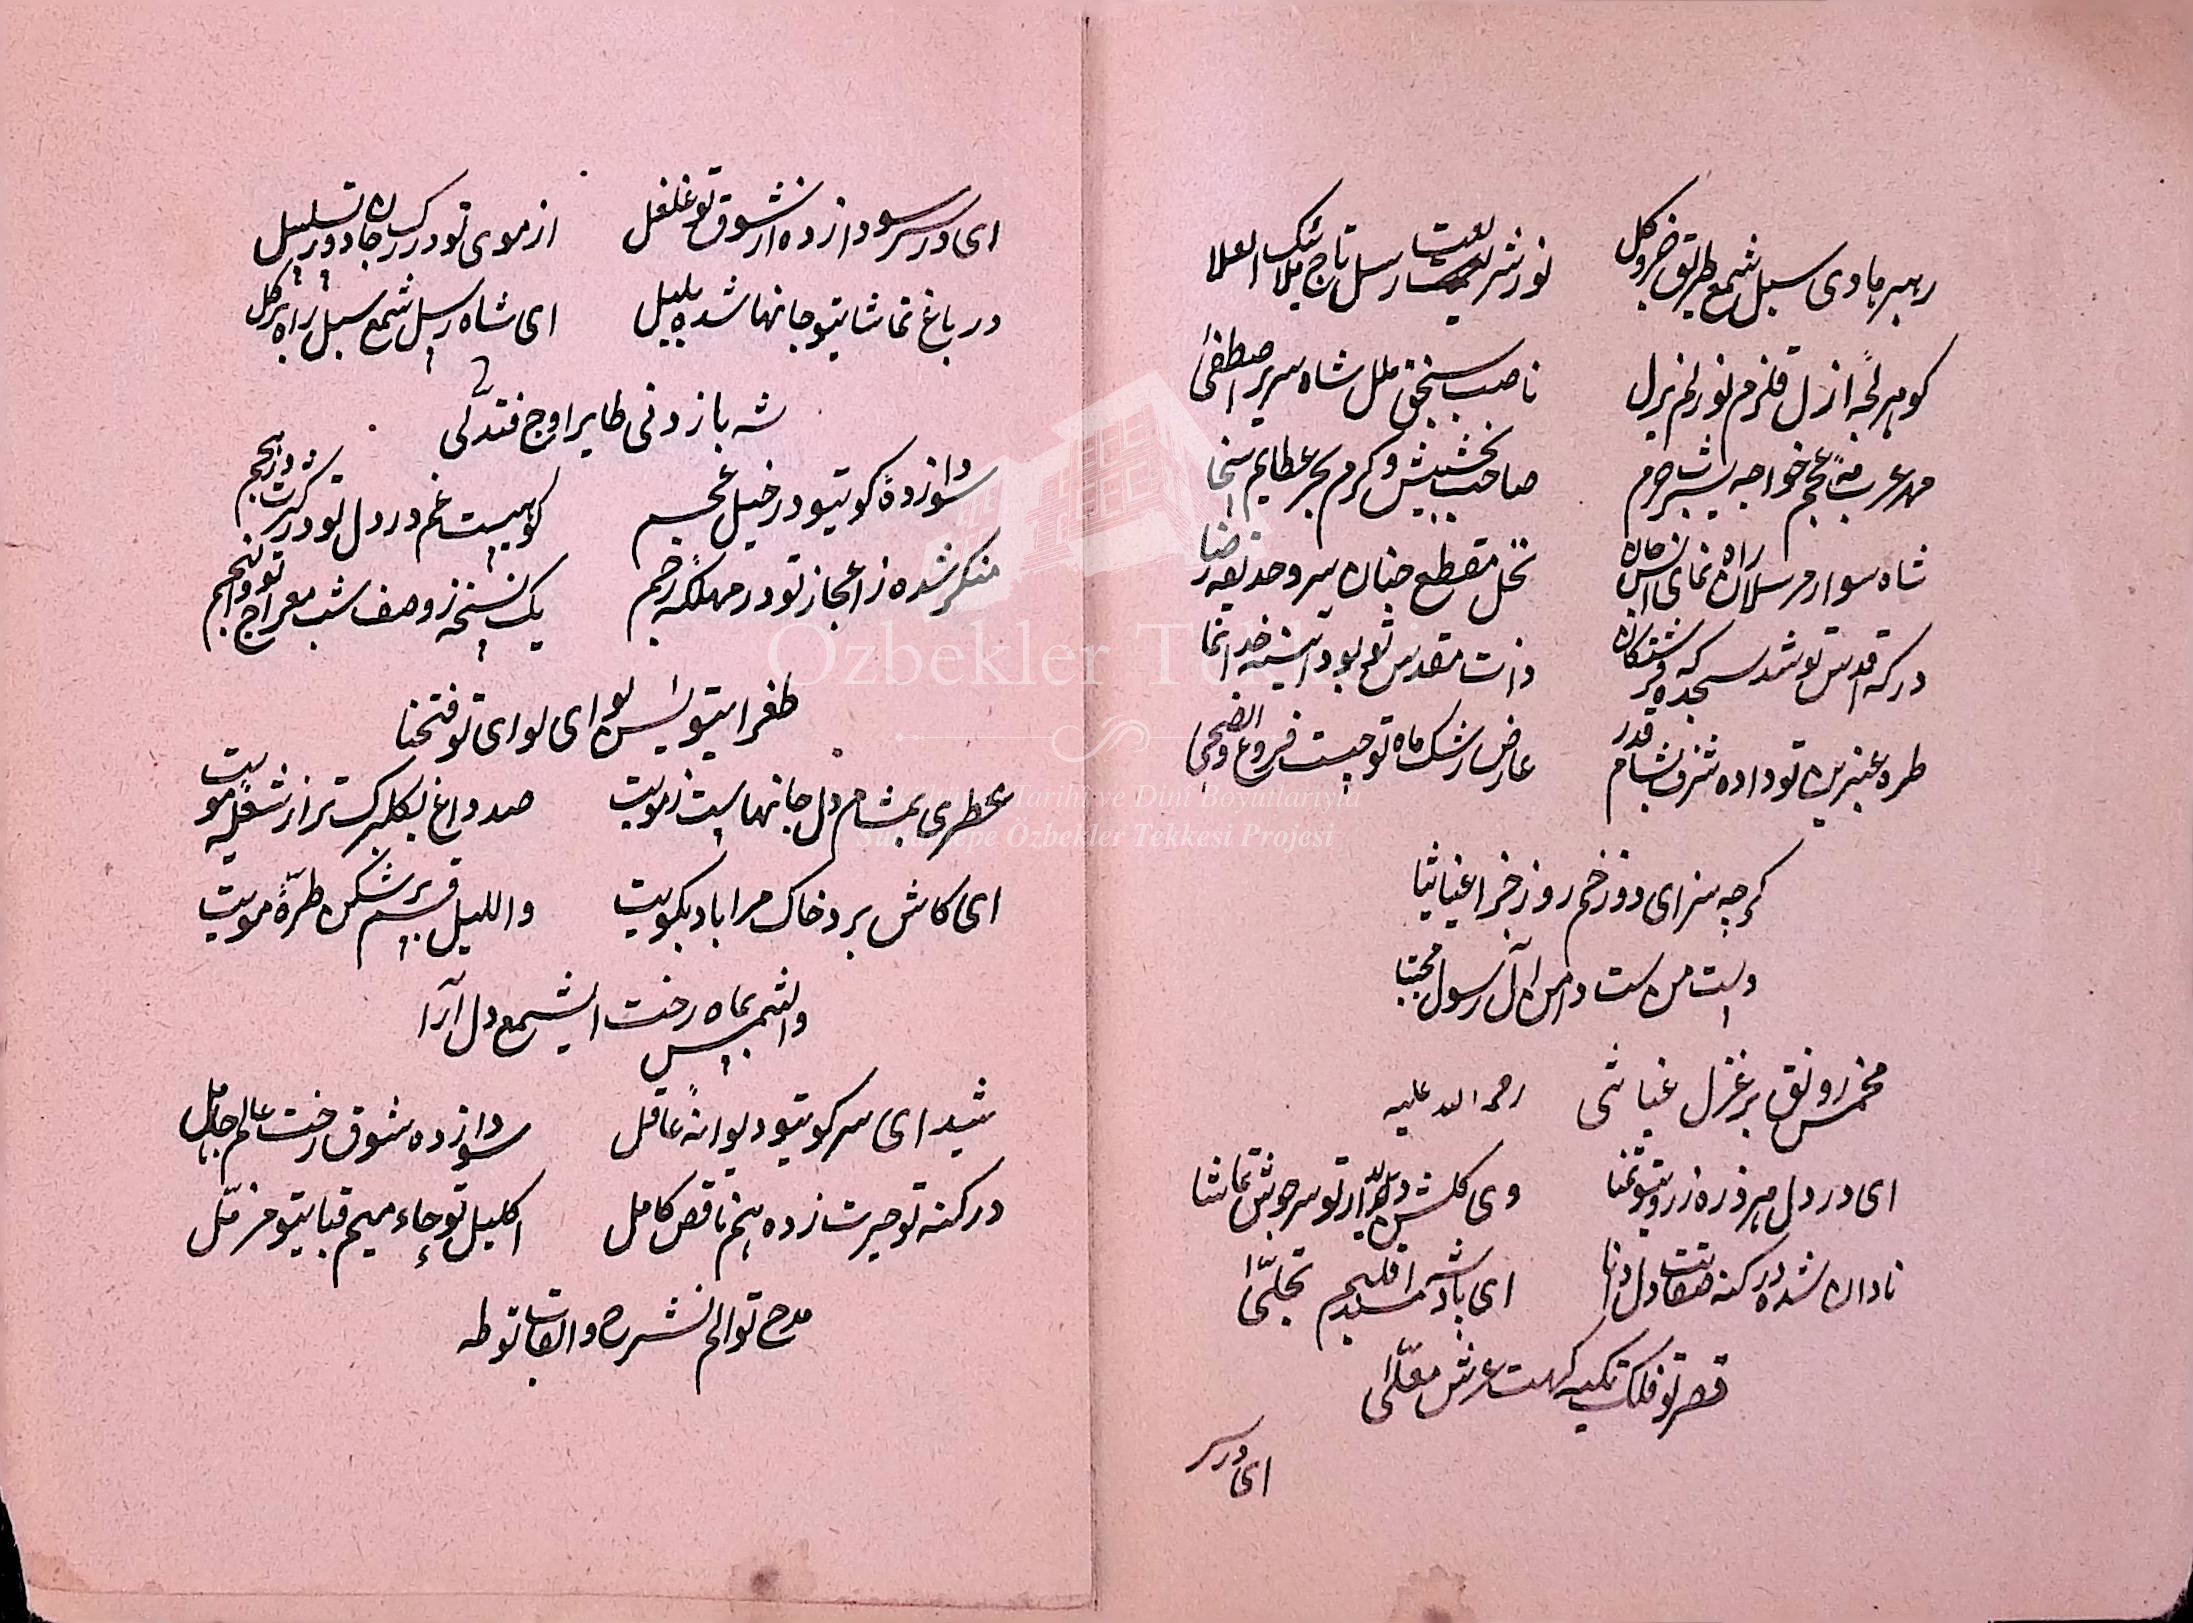 رهبر هادی سبل شمع طریق جزو کل نور شریعت رسل تاج ملائک العلا
گوهر لجهٔ ازل قلزم نور لم یزل ناصب سنجق ملل شاه سریر اصطفیٰ
مه عرب مه عجم خواجه یثرب حرم صاحب بخشش و کرم بحر عطایم سخا
شاه سوار مرسلان راه نمای انس جان نخل مقطع جنان سرو حدیقه رضا
درکه اقدس تو شد سجده که فرشتکان ذات مقدس تو بود آئینه خدا نما
طره عنبرین تو داده شرف بشام قدر عارض رشک ماه تو چیست فروغ والضحی
کرچه سزای دوزخم روز جزا غیاثیا
دست من ست دامن آل رسول مجتبا
مخمس رونق بر غزل غیاثی رحمه الله علیه
ای در دل هر ذره ز رویتو تمنا وی کلشن دیدار تو سرجوش تماشا
نادان شده در کنه صفاتت دل دانا ای باد شه مسند اقلیم تجلّیٰ
قصر تو فلک تکیه کهت عرش معلّیٰ
ای در سر
ای در سر سودا زده از شوق تو غلغل از موی تو در کردن جان دور تسلسل
در باغ تماشایتو جانها شده بلبل ای شاه رسل شمع سبل راه بر کل
شه باز دنی طایر اوج فتدلّی
سودا زدهٔ کویتو در خیل عجم کوهیست غم در دل تو در کثرت
منکر شده ز اعجاز تو در مهلکه رجم یک نسخه ز وصف شب معراج تو والنجم
طغرایتو یٰس لوای لوای تو فتحنا
عطری بمشام دل جانهاست ز مویت صد داغ بکلبرک تر از شعلهٔ مویت
ای کاش برد خاک مرا باد بکویت واللیل قسم بر شکن طرّهٔ مویت
والشمس بماه رخت ای شمع دل آرا
شیدای سر کویتو دیوانهٔ عاقل سودا زده شوق رخت عالم جاهل
در کنه تو حیرت زده هم ناقص کامل اکلیل تو حاء میم قبایتو مزمّل
مدح تو الم نشرح و القاب تو طه
Özbekler Tekkesi
Tarihi ve Dini Boyutlarıyla
Sultantepe Özbekler Tekkesi Projesi